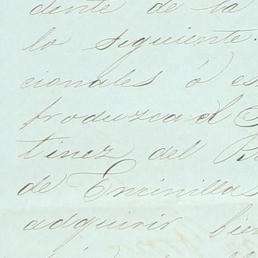 dente de la
lo siguiente.
cionales ó es
produzca el
tinez del
de Encinillas
adquirir bien